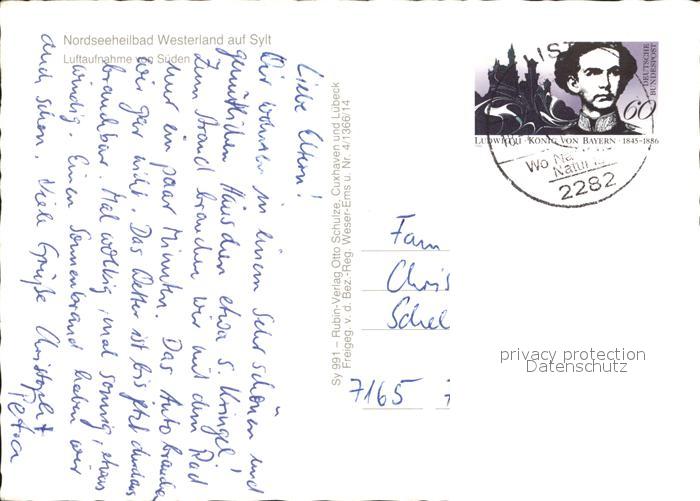 Nordseeheilbad Westerland auf Sylt
Luftaufnahme von Süden
Liebe Eltern!
Wir wohnen in einem sehr schönen und
gemütlichen Häuschen etwa s. Kringel!
Zum Strand brauchen wir mit dem Rad
nur ein paar Minuten. Das Auto brauchen
wir gar nicht. Das Wetter ist bis jetzt durchaus
brauchbar. Mal wolkig, mal sonnig, etwas
windig. Einen Sonnenbrand haben wir
auch schon. Viele Grüße Christoph +
Petra
Sy 991 – Rubin-Verlag Otto Schulze, Cuxhaven und Lübeck
Freigeg. v. d. Bez.-Reg. Weser-Ems u. Nr. 4/1366/14
DEUTSCHE
BUNDESPOST
60
LUDWIG II · KÖNIG VON BAYERN · 1845-1886
Wo Na
Natur
2282
Fam
Chris
Schel
7165
privacy protection
Datenschutz